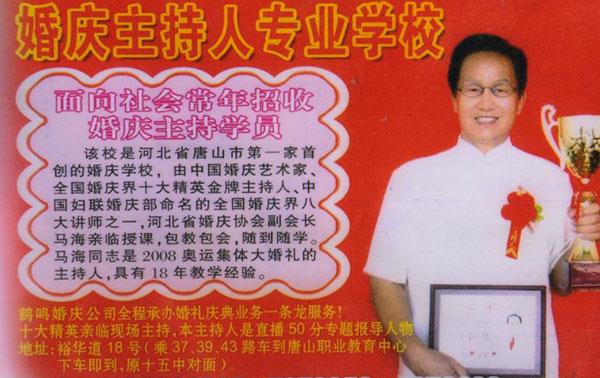 婚庆主持人专业学校
面向社会常年招收
婚庆主持学员
该校是河北省唐山市第一家首
创的婚庆学校，由中国婚庆艺术家、
全国婚庆界十大精英金牌主持人、中
国妇联婚庆部命名的全国婚庆界八
大讲师之一，河北省婚庆协会副会长
马海亲临授课，包教包会，随到随学。
马海同志是2008奥运集体大婚礼的
主持人，具有18年教学经验。
鹤鸣婚庆公司全程承办婚礼庆典业务一条龙服务！
十大精英亲临现场主持，本主持人是直播50分专题报导人物
地址：裕华道18号（乘37、39、43路车到唐山职业教育中心
下车即到，原十五中对面）